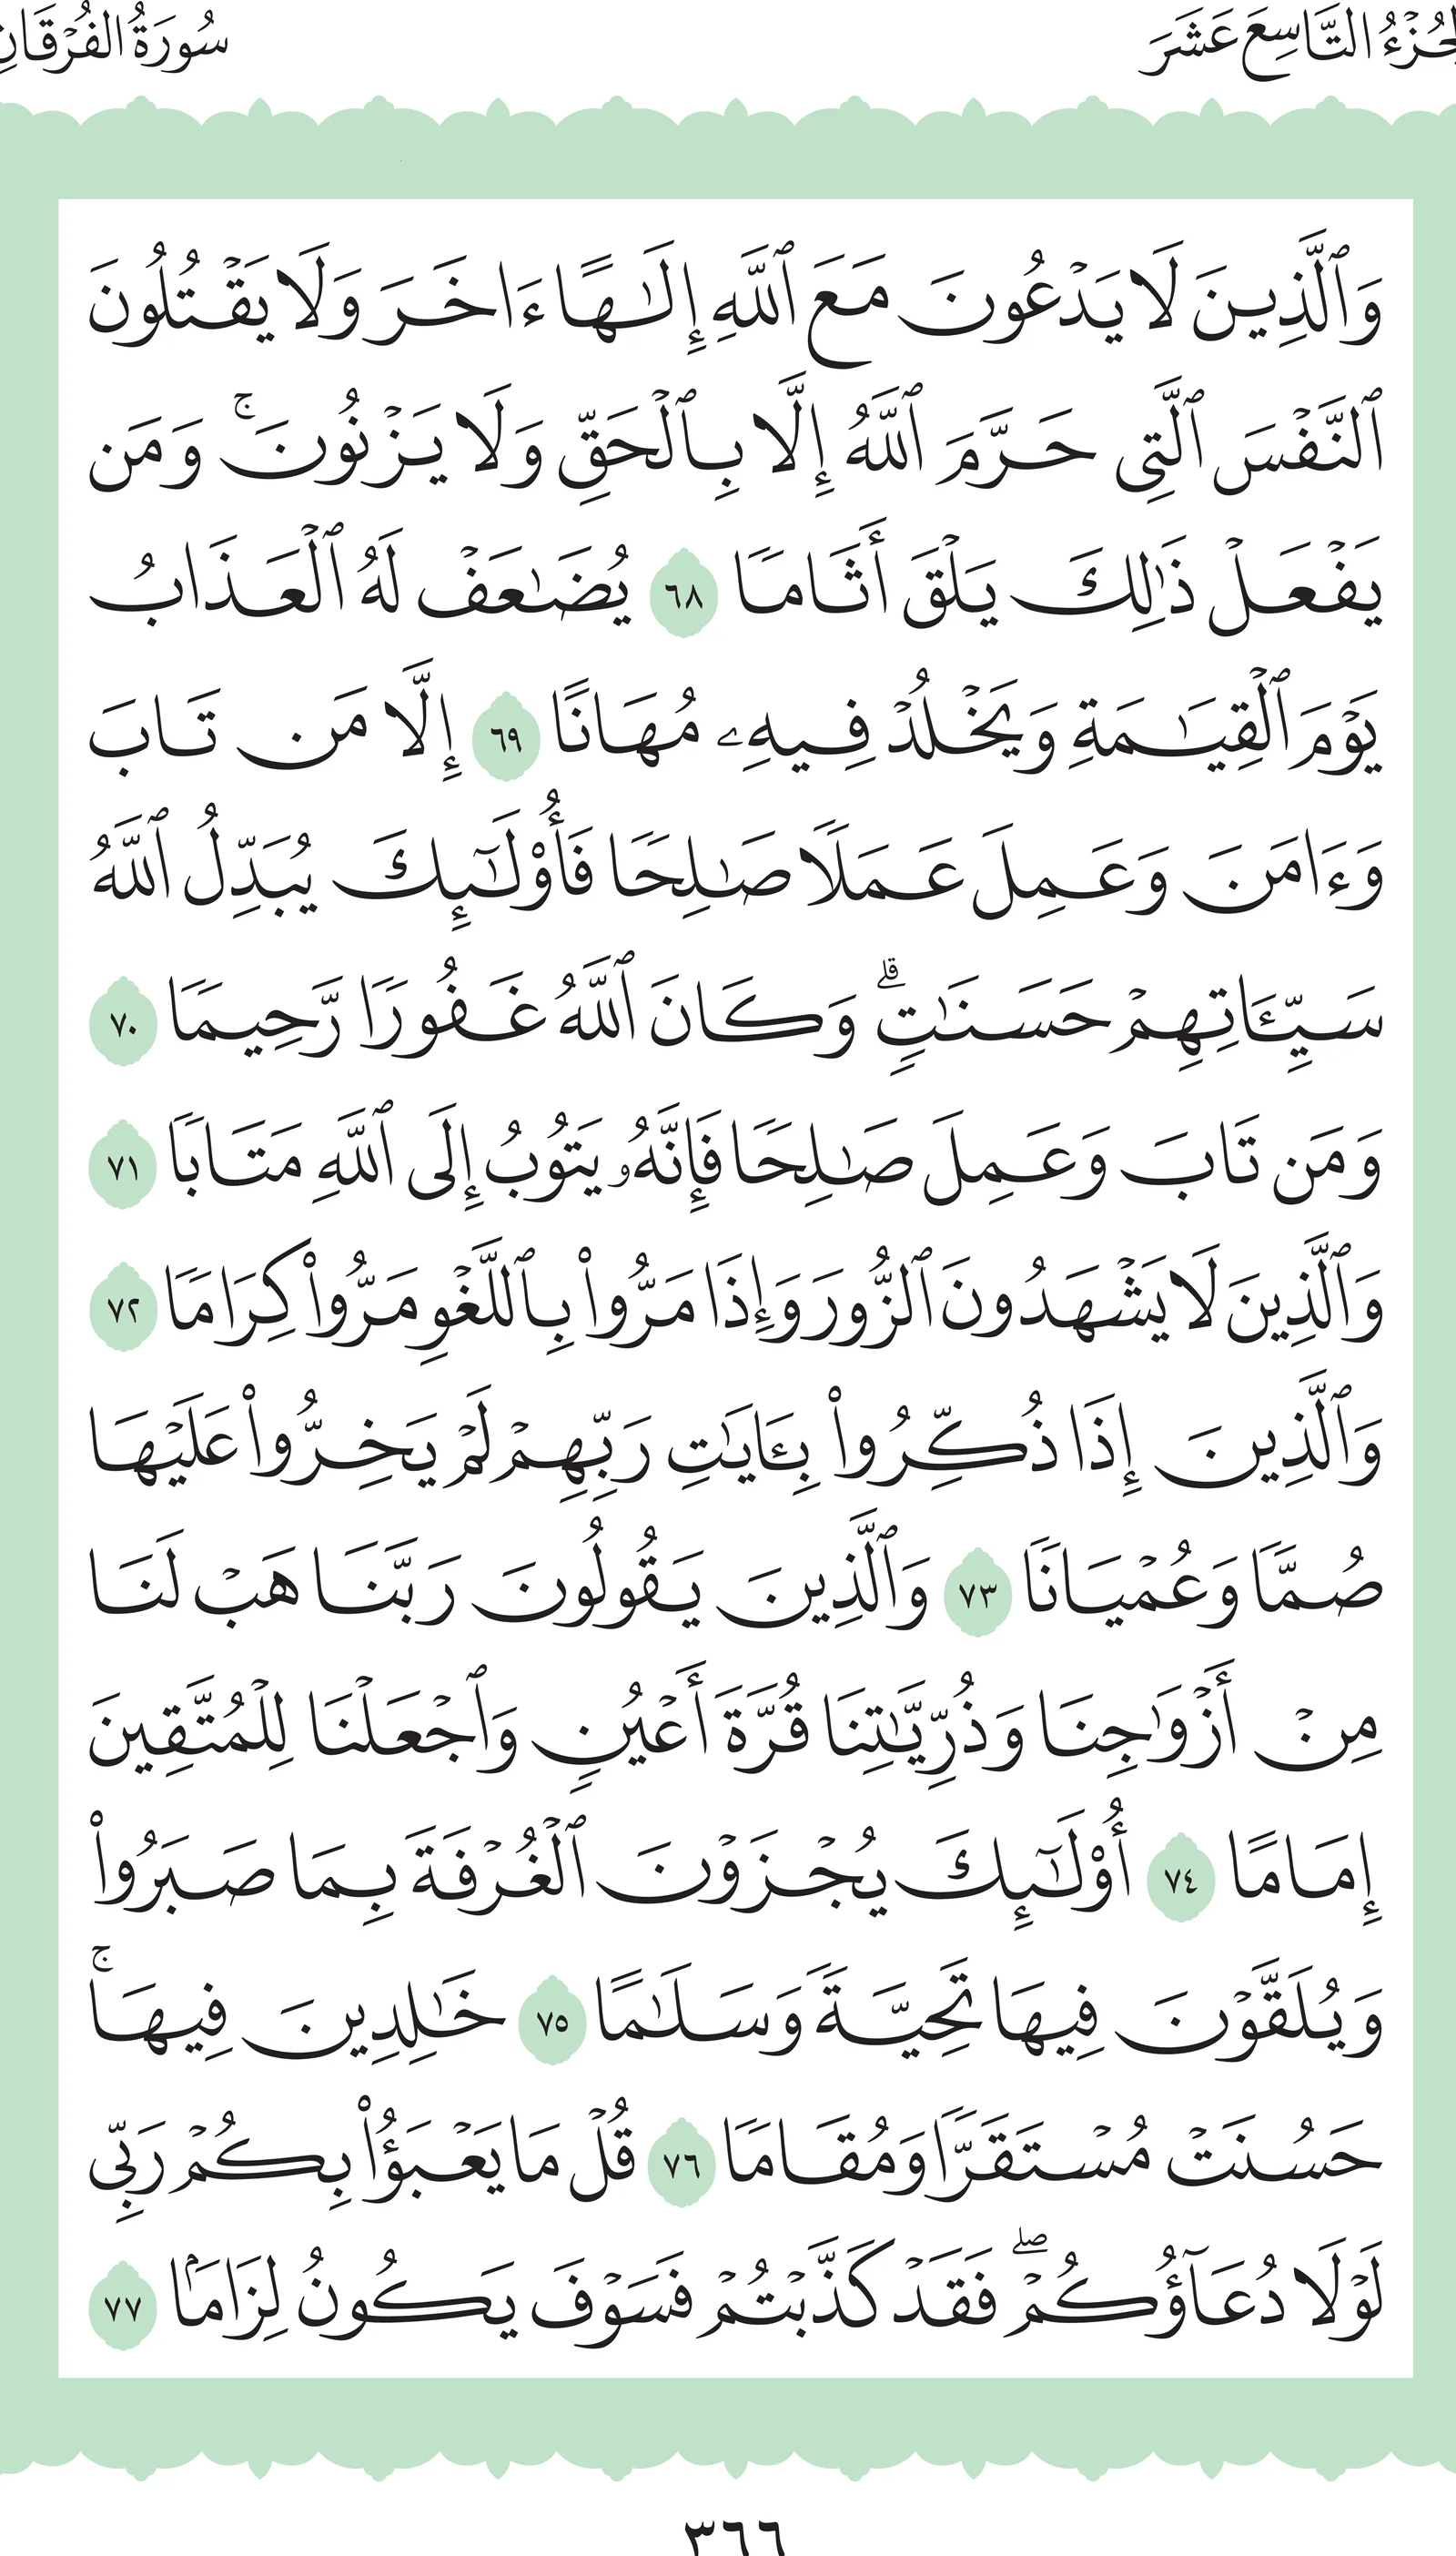 الجُزْءُ التَّاسِعَ عَشَرَ
سُورَةُ الفُرْقَانِ
وَٱلَّذِينَ لَا يَدۡعُونَ مَعَ ٱللَّهِ إِلَٰهًا ءَاخَرَ وَلَا يَقۡتُلُونَ
ٱلنَّفۡسَ ٱلَّتِي حَرَّمَ ٱللَّهُ إِلَّا بِٱلۡحَقِّ وَلَا يَزۡنُونَۚ وَمَن
يَفۡعَلۡ ذَٰلِكَ يَلۡقَ أَثَامٗا ٦٨ يُضَٰعَفۡ لَهُ ٱلۡعَذَابُ
يَوۡمَ ٱلۡقِيَٰمَةِ وَيَخۡلُدۡ فِيهِۦ مُهَانًا ٦٩ إِلَّا مَن تَابَ
وَءَامَنَ وَعَمِلَ عَمَلٗا صَٰلِحٗا فَأُوْلَٰٓئِكَ يُبَدِّلُ ٱللَّهُ
سَيِّـَٔاتِهِمۡ حَسَنَٰتٖۗ وَكَانَ ٱللَّهُ غَفُورٗا رَّحِيمٗا ٧٠
وَمَن تَابَ وَعَمِلَ صَٰلِحٗا فَإِنَّهُۥ يَتُوبُ إِلَى ٱللَّهِ مَتَابٗا ٧١
وَٱلَّذِينَ لَا يَشۡهَدُونَ ٱلزُّورَ وَإِذَا مَرُّواْ بِٱللَّغۡوِ مَرُّواْ كِرَامٗا ٧٢
وَٱلَّذِينَ إِذَا ذُكِّرُواْ بِـَٔايَٰتِ رَبِّهِمۡ لَمۡ يَخِرُّواْ عَلَيۡهَا
صُمّٗا وَعُمۡيَانٗا ٧٣ وَٱلَّذِينَ يَقُولُونَ رَبَّنَا هَبۡ لَنَا
مِنۡ أَزۡوَٰجِنَا وَذُرِّيَّٰتِنَا قُرَّةَ أَعۡيُنٖ وَٱجۡعَلۡنَا لِلۡمُتَّقِينَ
إِمَامًا ٧٤ أُوْلَٰٓئِكَ يُجۡزَوۡنَ ٱلۡغُرۡفَةَ بِمَا صَبَرُواْ
وَيُلَقَّوۡنَ فِيهَا تَحِيَّةٗ وَسَلَٰمًا ٧٥ خَٰلِدِينَ فِيهَاۚ
حَسُنَتۡ مُسۡتَقَرّٗا وَمُقَامٗا ٧٦ قُلۡ مَا يَعۡبَؤُاْ بِكُمۡ رَبِّي
لَوۡلَا دُعَآؤُكُمۡۖ فَقَدۡ كَذَّبۡتُمۡ فَسَوۡفَ يَكُونُ لِزَامَۢا ٧٧
٣٦٦